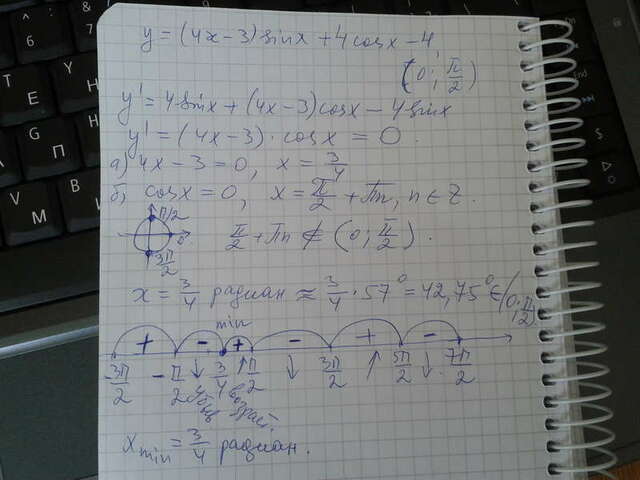 y = (4x-3) sinx + 4 cosx - 4
(0; π/2)
y' = 4 sinx + (4x-3) cosx - 4 sinx
y' = (4x-3) · cosx = 0.
а) 4x - 3 = 0, x = 3/4
б) cosx = 0, x = π/2 + πn, n ∈ Z.
π/2
0
3π/2
π/2 + πn ∉ (0; π/2).
x = 3/4 радиан ≈ 3/4 · 57° = 42,75° ∈ (0; π/2)
min
+ - + - + -
3π/2 - π/2 ↓ 3/4 ↑ π/2 ↓ 3π/2 ↑ 5π/2 ↓ 7π/2
убыв возраст.
x min = 3/4 радиан.